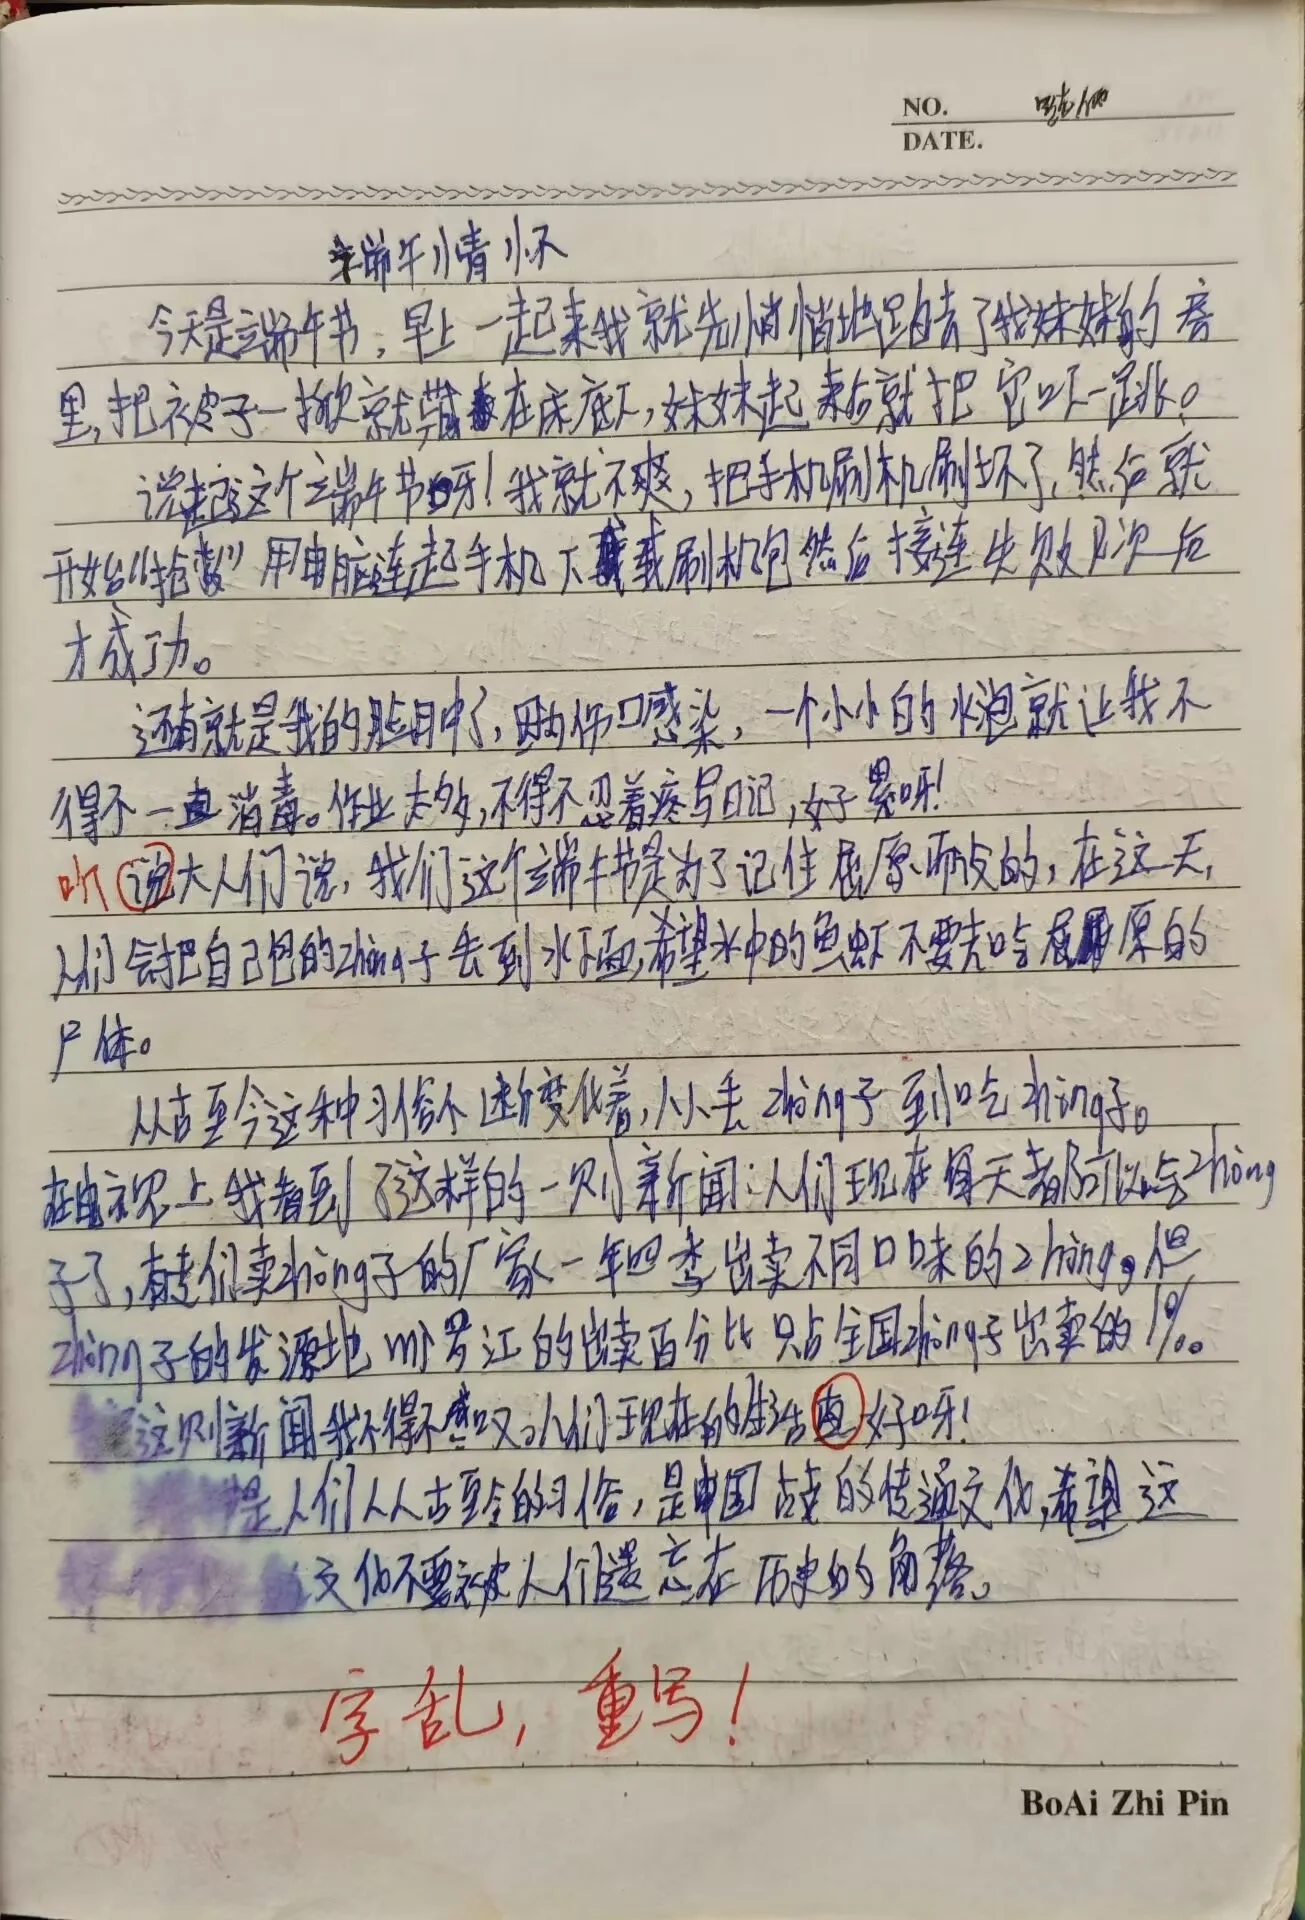 NO.
DATE.
端午情怀
今天是端午节,早上一起来我就先悄悄地跑去了我妹妹的房
里,把被子一掀就藏在床底下,妹妹起来后就把它吓一跳。
说起这个端午节呀!我就不爽,把手机刷机刷坏了,然后就
开始“抢救”用电脑连起手机下载刷机包然后接连失败几次后
才成功。
还有就是我的脸肿了,因为伤口感染,一个小小的水泡就让我不
得不一直消毒。作业太多,不得不忍着疼写日记,好累呀!
听说大人们说,我们这个端午节是为了记住屈原而设的,在这一天,
人们会把自己包的zhòng子丢到水下面,希望水中的鱼虾不要先吃屈原的
尸体。
从古至今这种习俗不断变化着,从丢zhòng子到吃zhòng子。
在电视上我看到了这样的一则新闻:人们现在每天都可以吃zhòng
子了,有专们卖zhòng子的厂家一年四季出卖不同口味的zhòng。但
zhòng子的发源地汨罗江的出卖百分比只占全国zhòng子出卖的1%。
这则新闻我不得不感叹。人们现在的生活真好呀!
是人们从古至今的习俗,是中国古老的传通文化,希望这
文化不要被人们遗忘在历史的角落。
字乱,重写!
BoAi Zhi Pin